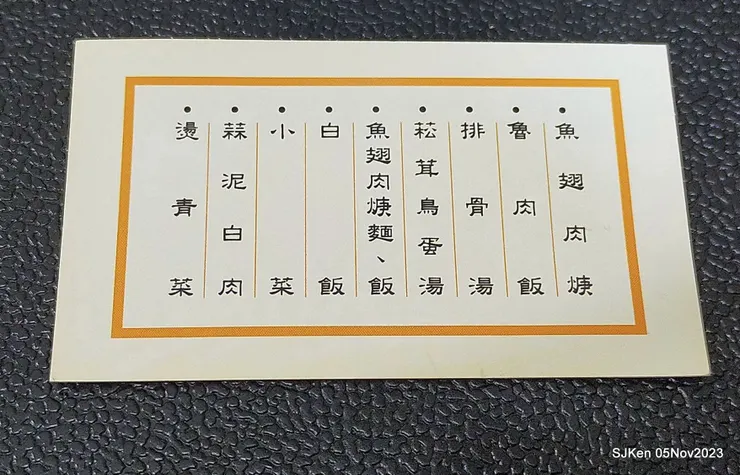 •魚翅肉焿
•魯肉飯
•排骨湯
•菘茸鳥蛋湯
•魚翅肉焿麵、飯
•白飯
•小菜
•蒜泥白肉
•燙青菜
SJKen 05Nov2023